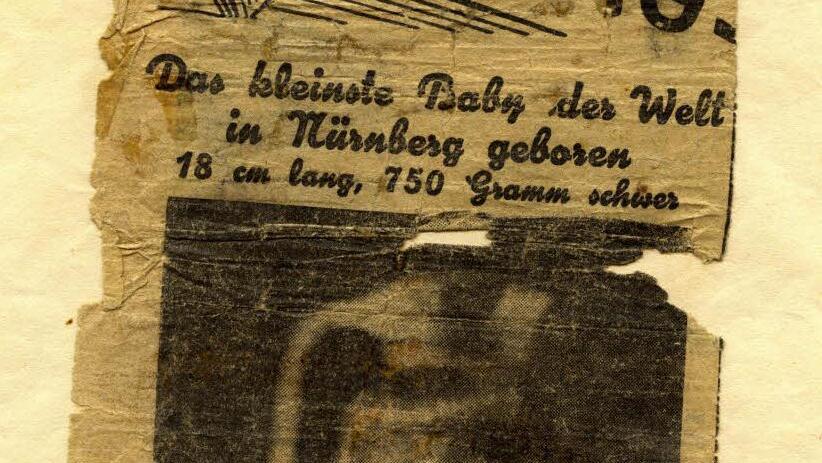 Das kleinste Baby der Welt
in Nürnberg geboren
18 cm lang, 750 Gramm schwer